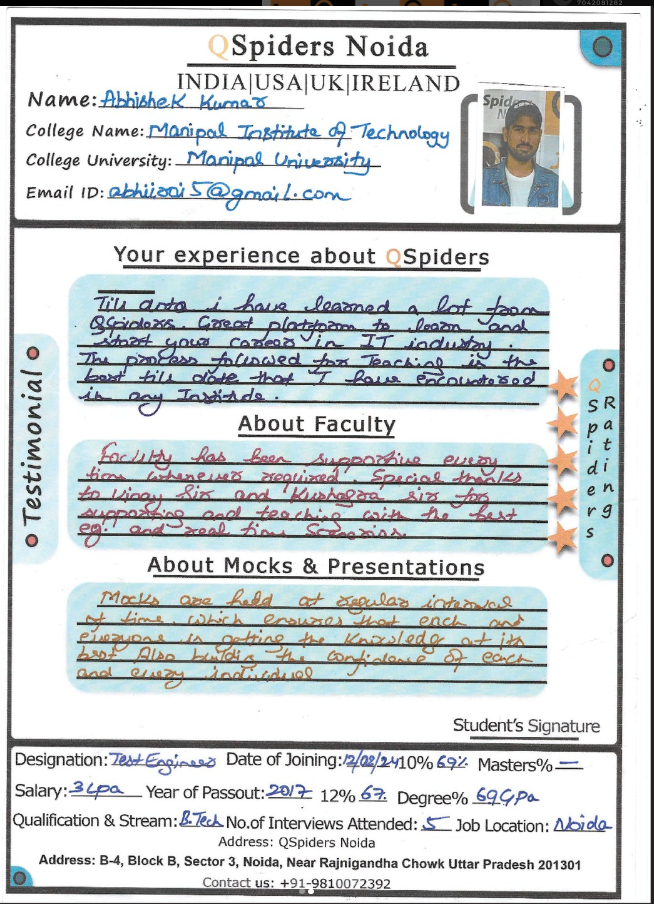 QSpiders Noida
INDIA|USA|UK|IRELAND
Name: Abhishek Kumar
College Name: Manipal Institute of Technology
College University: Manipal University
Email ID: abhiirai5@gmail.com
Your experience about QSpiders
Till date i have learned a lot from
QSpiders. Great platform to learn and
start your career in IT industry.
The process followed for Teaching is the
best till date that I have encountered
in any Institute.
About Faculty
Faculty has been supportive every
time whenever required. Special thanks
to Vinay Sir and Kushagra sir for
supporting and teaching with the best
eg: and real time Scenarios.
About Mocks & Presentations
Mocks are held at regular interval
of time. which ensures that each and
everyone is getting the Knowledge at its
best. Also building the confidence of each
and every individual
Testimonial
QSpiders
Rating
Student's Signature
Designation: Test Engineer Date of Joining: 12/02/24 10% 69% Masters% —
Salary: 3 Lpa Year of Passout: 2017 12% 67 Degree% 6.9 GPa
Qualification & Stream: B.Tech No.of Interviews Attended: 5 Job Location: Noida
Address: QSpiders Noida
Address: B-4, Block B, Sector 3, Noida, Near Rajnigandha Chowk Uttar Pradesh 201301
Contact us: +91-9810072392